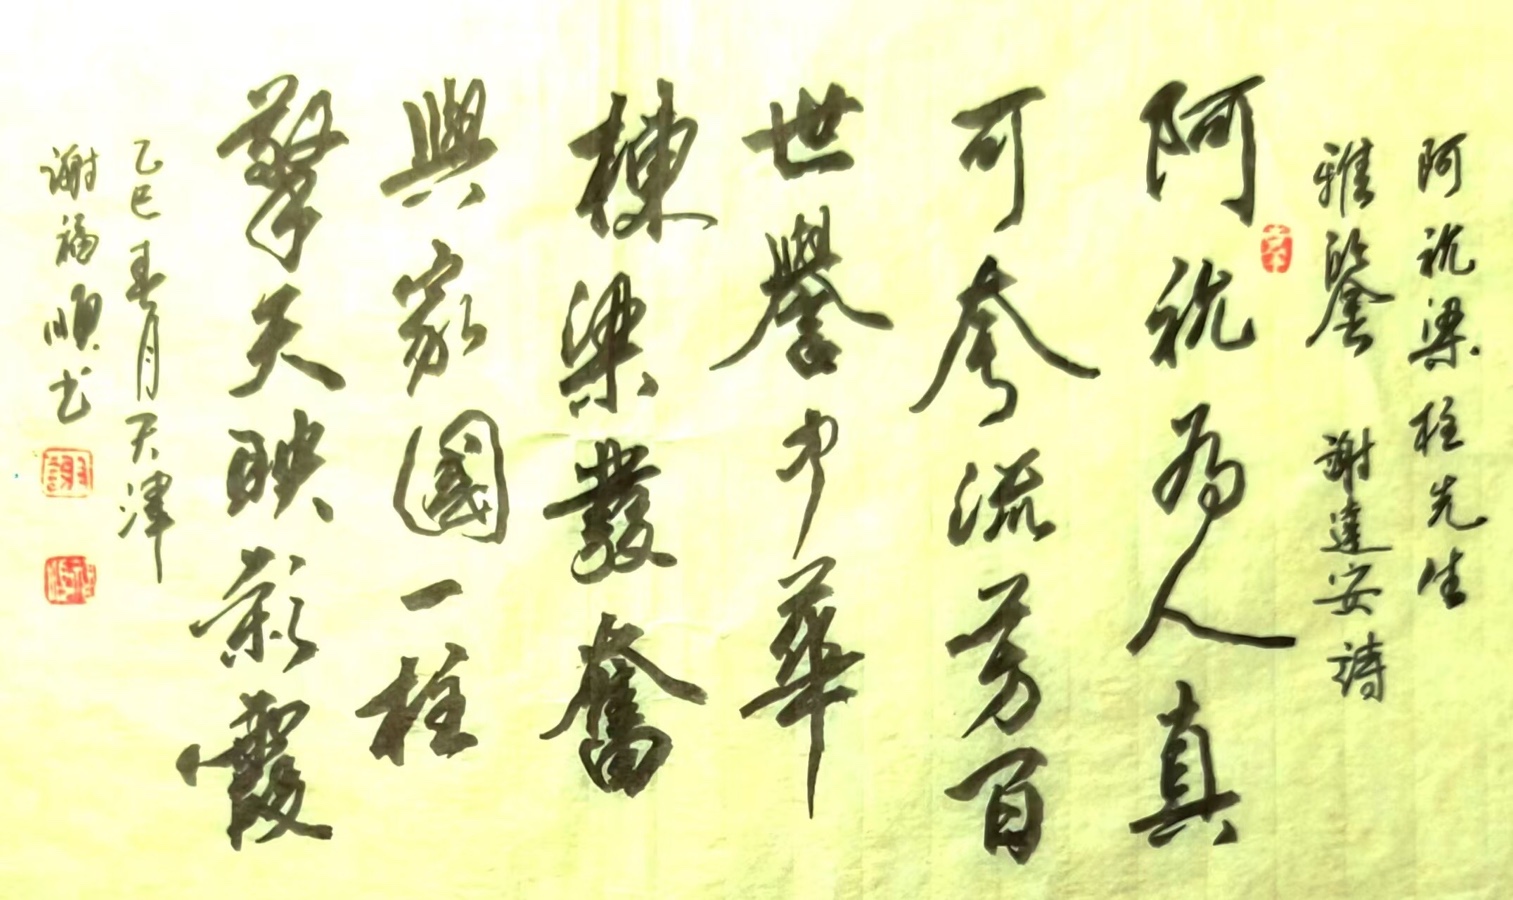 阿祝梁柱先生
雅鑒 謝達安詩
阿祝为人真
可夸流芳百
世譽中華
棟梁發奮
興家國一柱
擎天映彩霞
乙巳春月天津
謝福順书